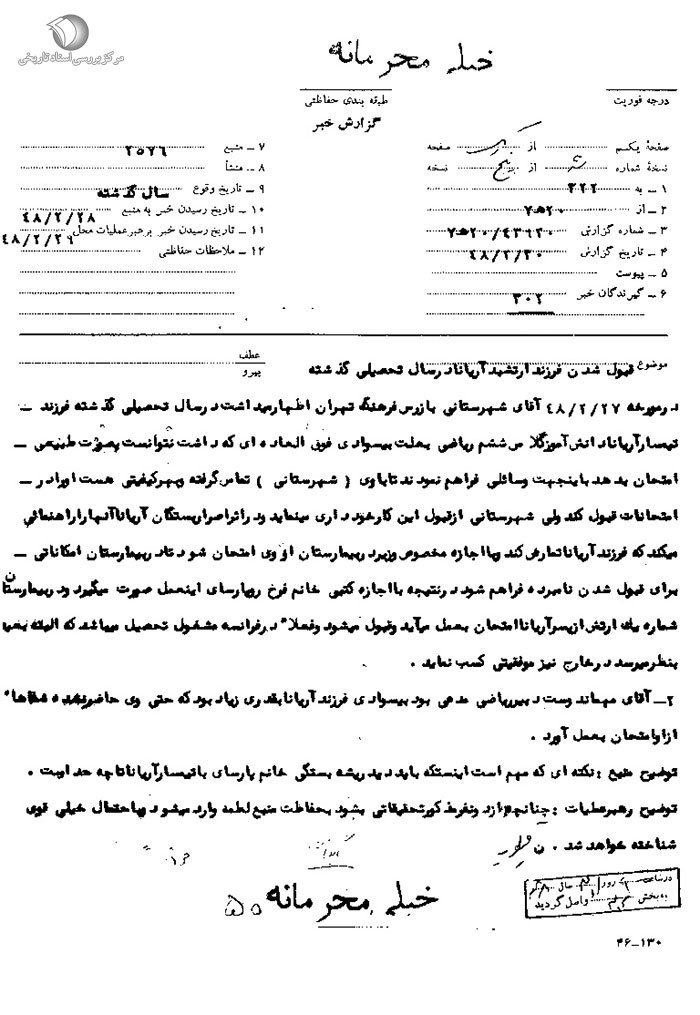 مرکز بررسی اسناد تاریخی
خیلی محرمانه
درجه فوریت
طبقه بندی حفاظتی
گزارش خبر
صفحهٔ یکم از صفحه
نسخهٔ شماره از پنج نسخه
۱ ــ به ۳۲۲
۲ ــ از ۲۰ﻫ۷
۳ ــ شماره گزارش
۴ ــ تاریخ گزارش ۴۸/۲/۳۰
۵ ــ پیوست
۶ ــ گیرندگان خبر ۳۰۲
۷ ــ منبع ۲۵۷۶
۸ ــ منشأ
۹ ــ تاریخ وقوع سال گذشته
۱۰ ــ تاریخ رسیدن خبر به منبع ۴۸/۲/۲۸
۱۱ ــ تاریخ رسیدن خبر برهبر عملیات محل ۴۸/۲/۲۹
۱۲ ــ ملاحظات حفاظتی
موضوع قبول شدن فرزند ارتشبد آریانا در سال تحصیلی گذشته
عطف
پیرو
در مورخه ۴۸/۲/۲۷ آقای شهرستانی بازرس فرهنگ تهران اظهار میداشت در سال تحصیلی گذشته فرزند ــ
تیمسار آریانا دانش آموز کلاس ششم ریاضی بعلت بیسوادی فوق العاده ای که داشت نتوانست بصورت طبیعی ــ
امتحان بدهد باینجهت وسائلی فراهم نمودند تا باوی ( شهرستانی ) تماس گرفته وبهر کیفیتی هست او را در ــ
امتحانات قبول کند ولی شهرستانی از قبول این کار خود داری مینماید ودر اثر اصرار بستگان آریانا آنها را راهنمائی
میکند که فرزند آریانا تمارض کند وبا اجازه مخصوص وزیر در بیمارستان از وی امتحان شود تا در بیمارستان امکاناتی ــ
برای قبول شدن نامبرده فراهم شود در نتیجه با اجازه کتبی خانم فرخ رو پارسای اینعمل صورت میگیرد ودر بیمارستان
شماره یک ارتش از پسر آریانا امتحان بعمل میآید وقبول میشود وفعلا" در فرانسه مشغول تحصیل میباشد که البته بعید
بنظر میرسد در خارج نیز موفقیتی کسب نماید .
۲ــ آقای میهماندوست دبیر ریاضی مدعی بود بیسوادی فرزند آریانا بقدری زیاد بود که حتی وی حاضر نشده شفاها"
از او امتحان بعمل آورد .
توضیح منبع : نکته ای که مهم است اینستکه باید دید ریشه بستگی خانم پارسای با تیمسار آریانا تا چه حد است .
توضیح رهبر عملیات : چنانچه از دو نفر فوق کور تحقیقاتی بشود بحفاظت منبع لطمه وارد میشود وباحتمال خیلی قوی
شناخته خواهد شد . ن
خیلی محرمانه
۵۰
در ساعت روز سال
به بخش ۳۲۲ واصل گردید
۴۶ــ۱۳۰